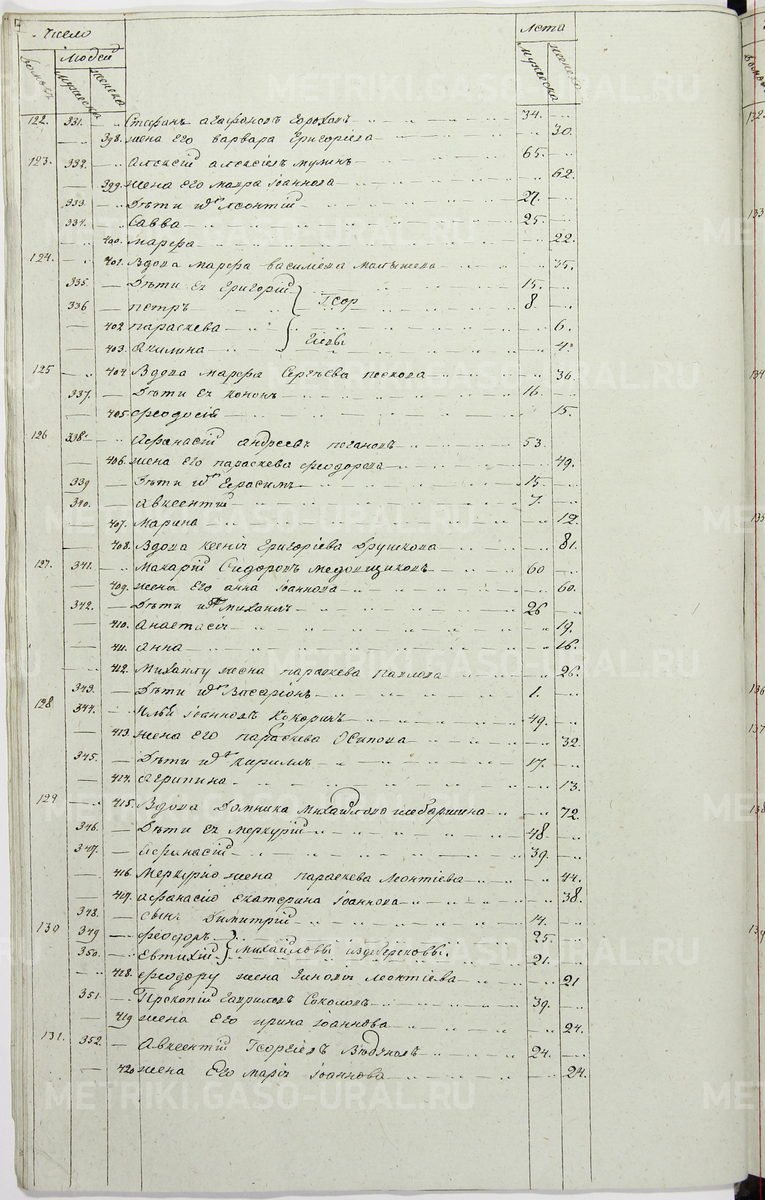 Число Лета
Людей
домовъ мужеска женска мужеска женска
122. 331. Стефанъ Агафоновъ 34.
398. жена Его варвара Григориева 30.
123. 332. Алексий Алексиевъ мулинъ 65.
399. жена Его мавра Иоаннова 62.
333. Дѣти ихъ Леонтий 27.
334. Савва 25.
400. марфа 22.
124. 401. Вдова марфа василиева малышева 35.
335. Дѣти Ея Григорий 15.
336 петръ 8
402 параскева 6.
403. Акилина 4.
125 404 Вдова марфа Сергѣева пескова 36
337. Дѣти Ея Кононъ 16.
405 феодосия 15.
126 338. Афанасий Андреевъ погановъ 53.
406. жена Его параскева феодорова 49.
339 Дѣти ихъ Герасимъ 15.
340. Авксентий 7.
407. марина 12.
408. Вдова ксения Григориева Друшкова 81.
127. 341. макарий Сидоровъ медовщиковъ 60
409. жена Его анна Иоаннова 60.
342. Дѣти ихъ михаилъ 26
410. Анастасия 19.
411. Анна 16.
412. Михаилу жена параскева Павлова 26.
343. Дѣти ихъ Висарионъ 1.
128 344. Илья Иоанновъ Кокоринъ 49.
413 жена Его параскева Осипова 32
345. Дѣти ихъ кирилъ 17.
414. агрипина 13.
129 415. Вдова Домника михайлова 72.
346. Дѣти Ея меркурий 48.
347. Афанасий 39.
416 меркурию жена параскева леонтиева 44.
417. афанасию Екатерина Иоаннова 38.
348. сынъ Димитрий 14.
130 349 феодоръ 25.
350. Евтихий михайловы 21.
418. феодору жена зиновия леонтиева 21
351. Прокопий Гавриловъ Соколовъ 39.
419 жена Его ирина Иоаннова 24.
131. 352. Авксентий Георгиевъ 24.
420 жена Его мария Иоаннова 24.
METRIKI.GASO-URAL.RU